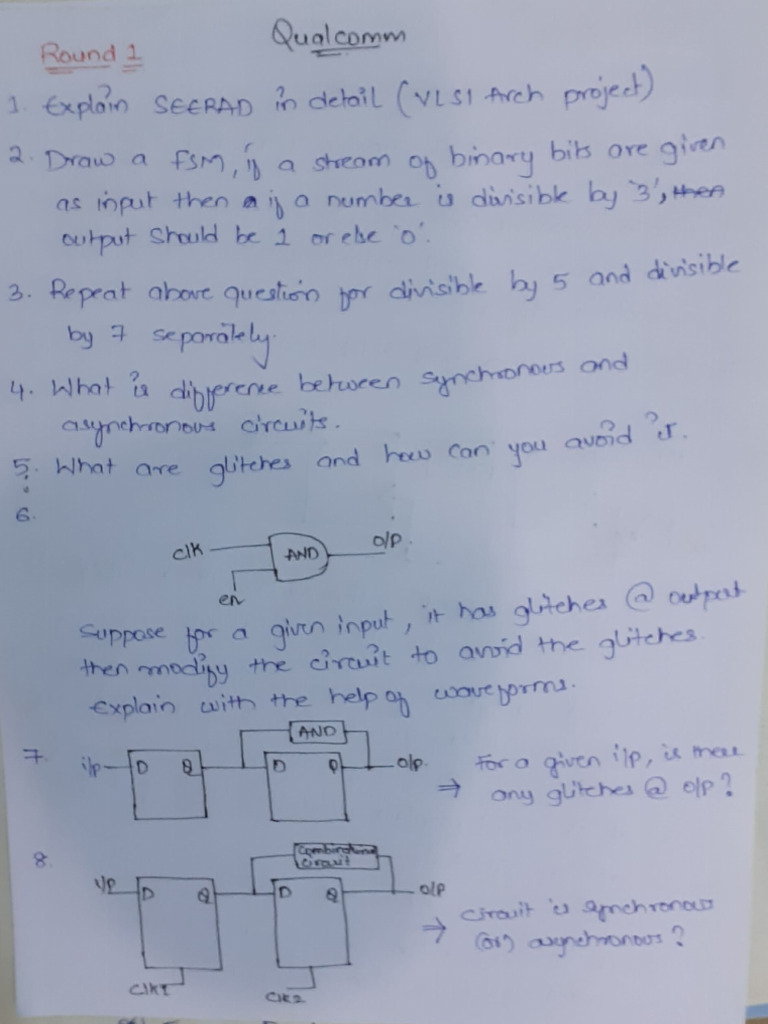 Qualcomm
Round 1
1. Explain SEERAD in detail (VLSI Arch project)
2. Draw a FSM, if a stream of binary bits are given
as input then if a number is divisible by '3', then
output should be 1 or else '0'.
3. Repeat above question for divisible by 5 and divisible
by 7 separately.
4. What is difference between synchronous and
asynchronous circuits.
5. What are glitches and how can you avoid it.
6.
clk
AND
o/p
en
Suppose for a given input, it has glitches @ output
then modify the circuit to avoid the glitches.
Explain with the help of waveforms.
7.
AND
i/p
D
Q
D
Q
o/p.
For a given i/p, is there
⇒ any glitches @ o/p?
8.
Combinational
circuit
i/p
D
Q
D
Q
o/p
⇒ circuit is synchronous
(or) asynchronous?
Clk1
Clk2